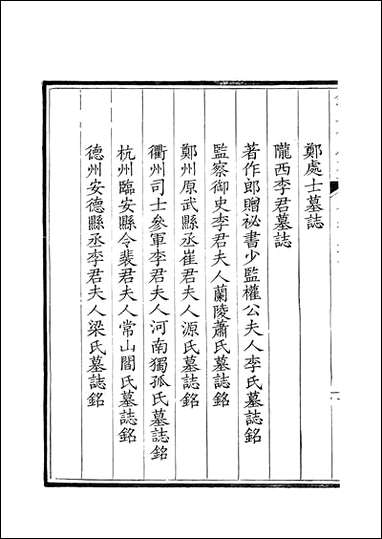 鄭處士墓誌
隴西李君墓誌
著作郎贈祕書少監權公夫人李氏墓誌銘
監察御史李君夫人蘭陵蕭氏墓誌銘
鄭州原武縣丞崔君夫人源氏墓誌銘
衢州司士參軍李君夫人河南獨孤氏墓誌銘
杭州臨安縣令裴君夫人常山閻氏墓誌銘
德州安德縣丞李君夫人梁氏墓誌銘